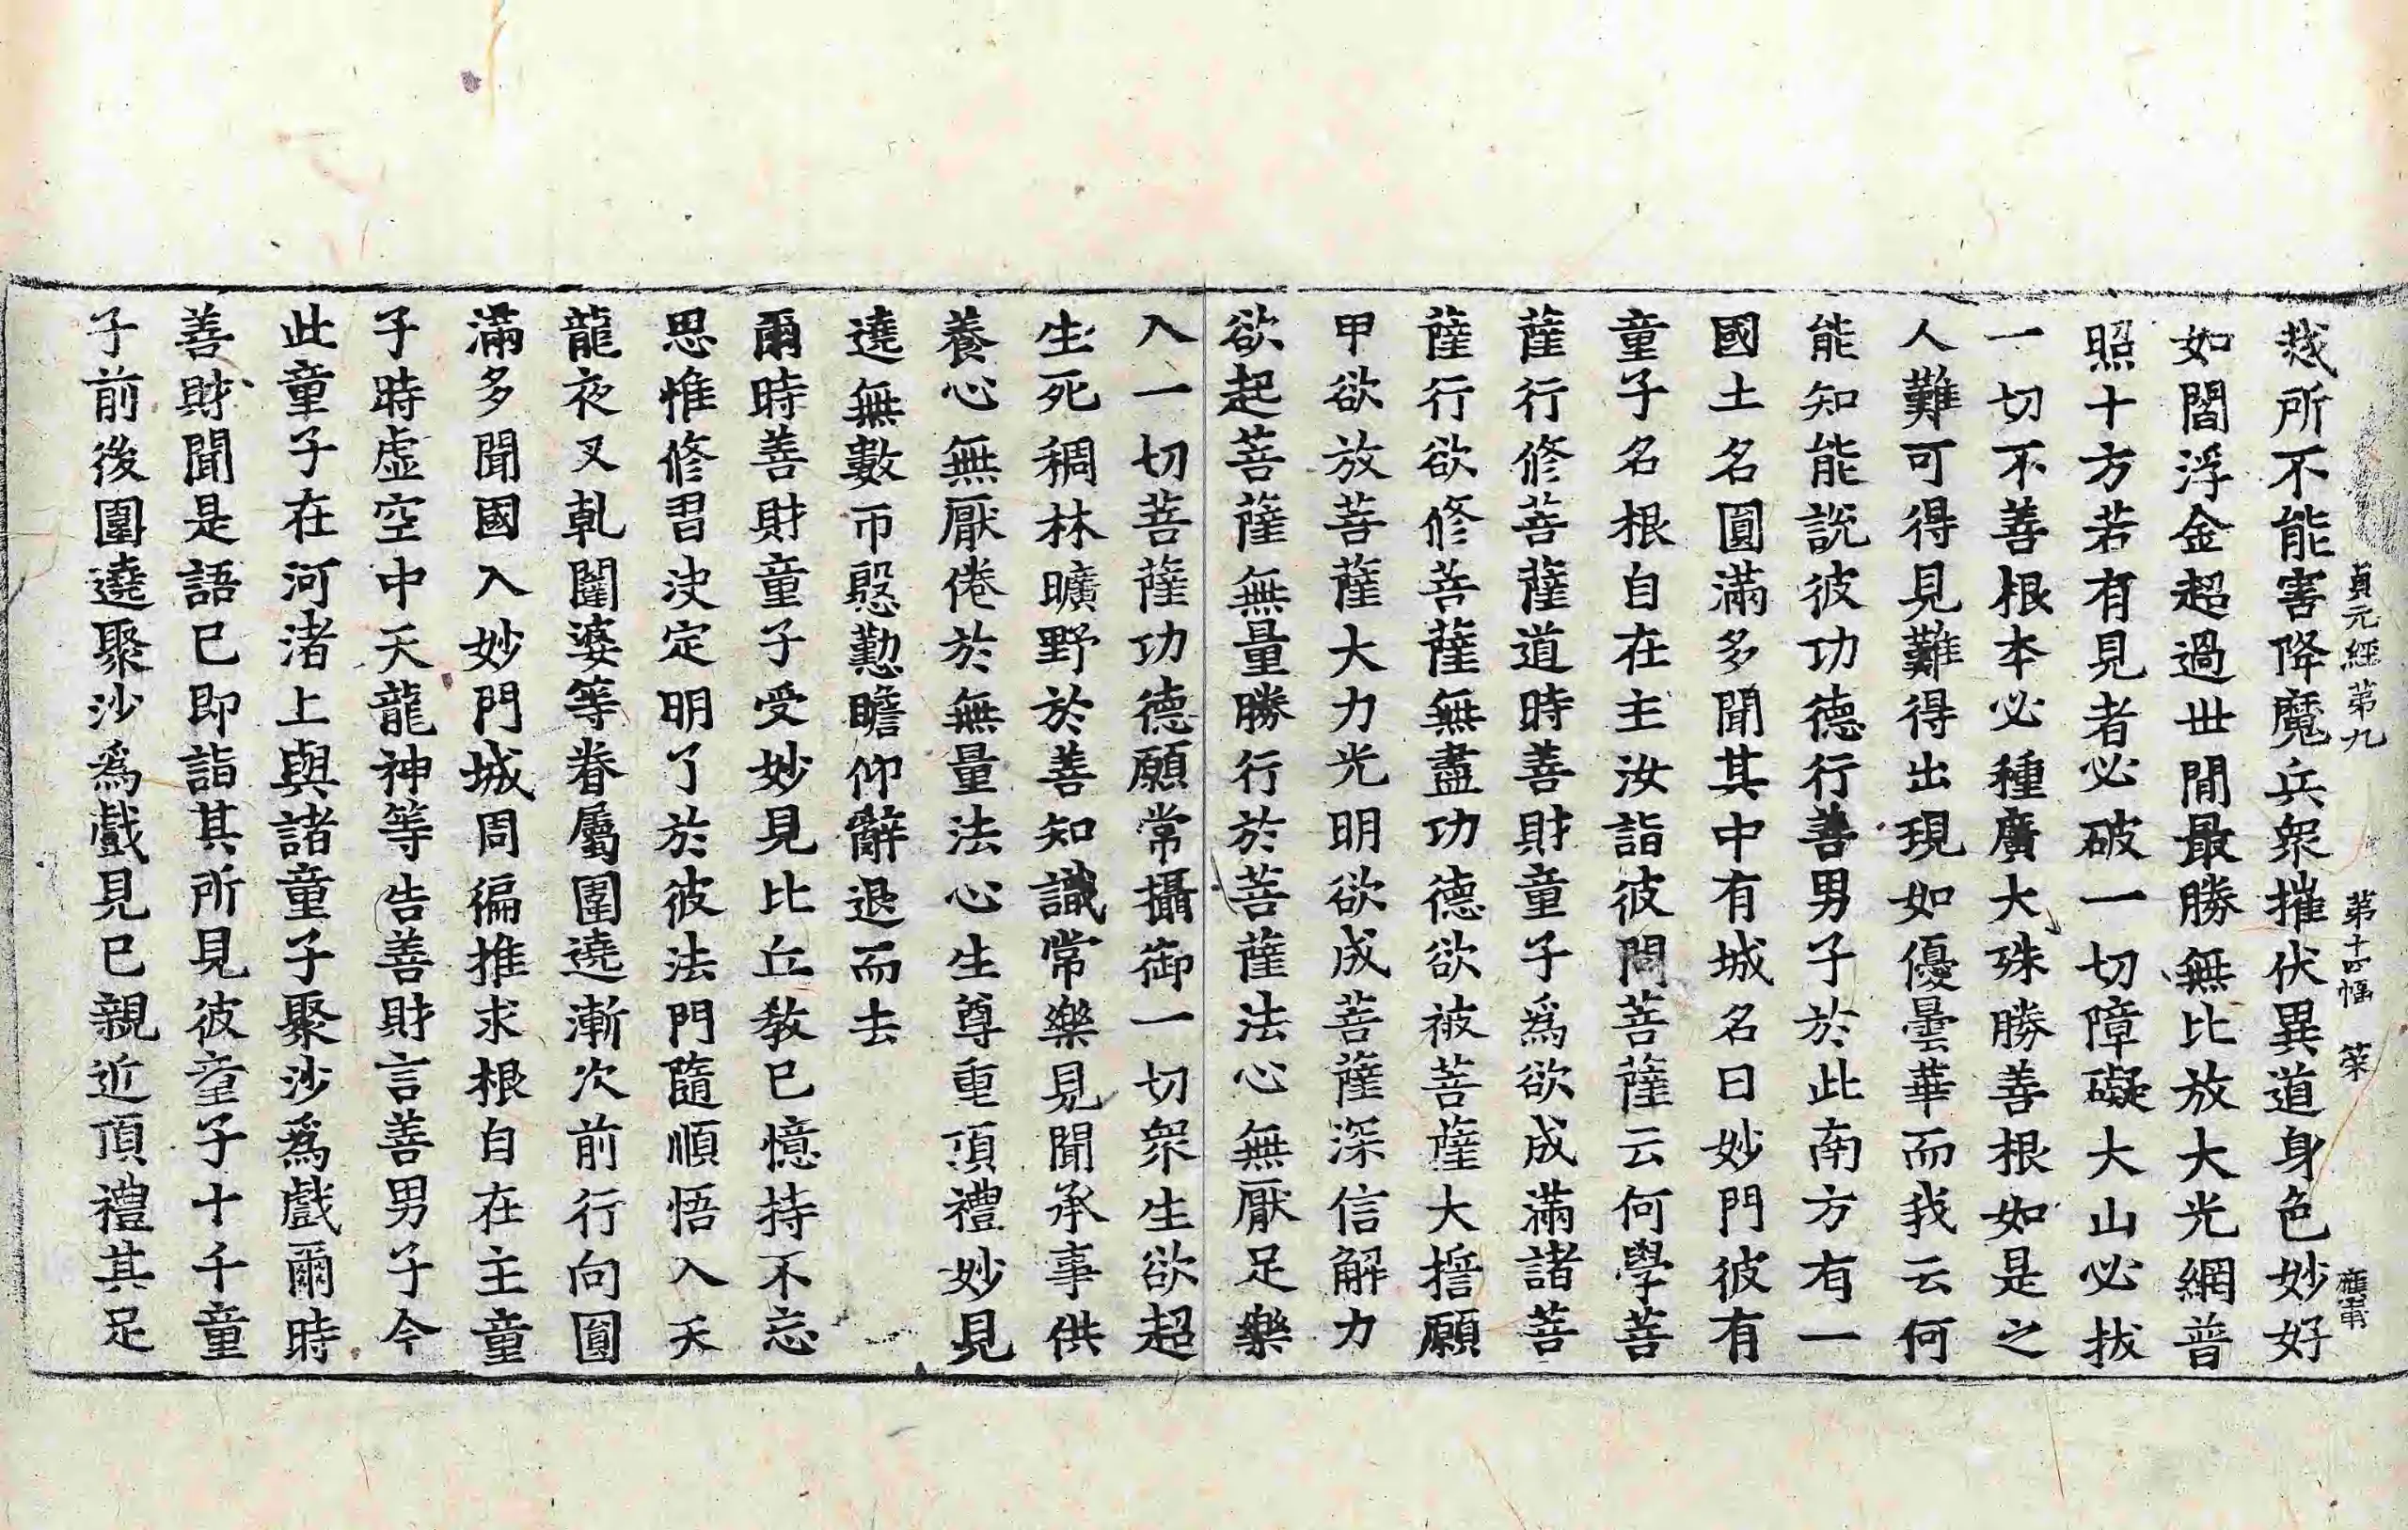 貞元經第九 第十四幅 策
烖所不能害降魔兵眾摧伏異道身色妙好
如閻浮金超過世間最勝無比放大光網普
照十方若有見者必破一切障礙大山必拔
一切不善根本必種廣大殊勝善根如是之
人難可得見難得出現如優曇華而我云何
能知能說彼功德行善男子於此南方有一
國土名圓滿多聞其中有城名曰妙門彼有
童子名根自在主汝詣彼問菩薩云何學菩
薩行修菩薩道時善財童子爲欲成滿諸菩
薩行欲修菩薩無盡功德欲被菩薩大誓願
甲欲放菩薩大力光明欲成菩薩深信解力
欲起菩薩無量勝行於菩薩法心無厭足樂
入一切菩薩功德願常攝御一切眾生欲超
生死稠林曠野於善知識常樂見聞承事供
養心無厭倦於無量法心生尊重頂禮妙見
遶無數帀慇懃瞻仰辭退而去
爾時善財童子受妙見比丘教已憶持不忘
思惟修習決定明了於彼法門隨順悟入天
龍夜叉乹闥婆等眷屬圍遶漸次前行向圓
滿多聞國入妙門城周徧推求根自在主童
子時虛空中天龍神等告善財言善男子今
此童子在河渚上與諸童子聚沙爲戲爾時
善財聞是語已即詣其所見彼童子十千童
子前後圍遶聚沙爲戲見已親近頂禮其足